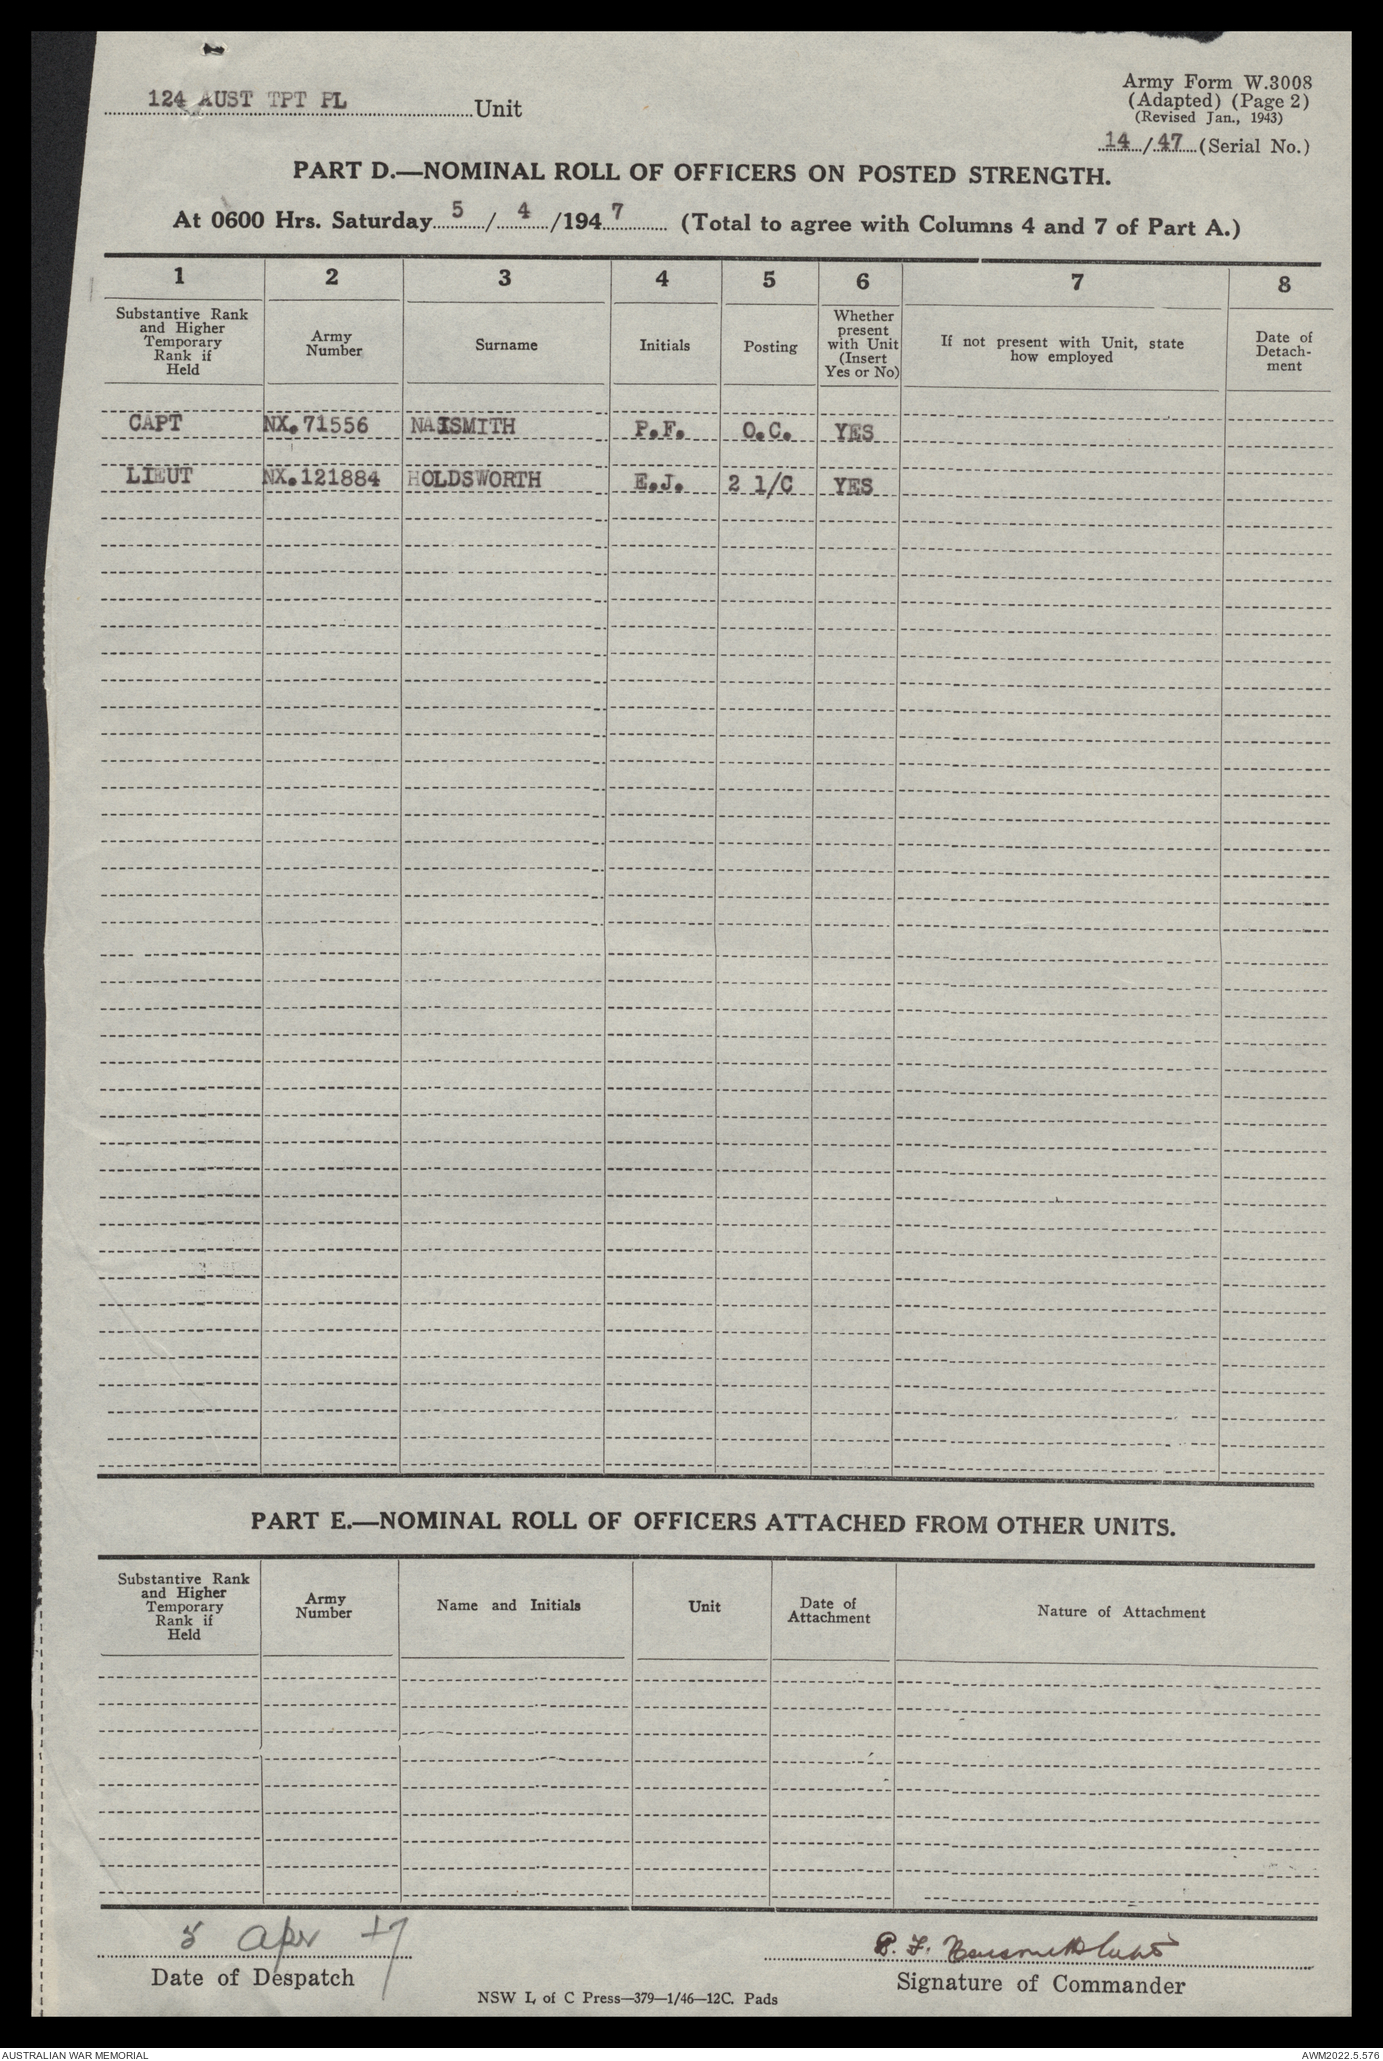 124 AUST TPT PL Unit
Army Form W.3008
(Adapted) (Page 2)
(Revised Jan., 1943)
14/47 (Serial No.)
PART D.—NOMINAL ROLL OF OFFICERS ON POSTED STRENGTH.
At 0600 Hrs. Saturday 5/4/1947 (Total to agree with Columns 4 and 7 of Part A.)
1 2 3 4 5 6 7 8
Substantive Rank and Higher Temporary Rank if Held
Army Number
Surname
Initials
Posting
Whether present with Unit (Insert Yes or No)
If not present with Unit, state how employed
Date of Detach-ment
CAPT NX.71556 NAISMITH P.F. O.C. YES
LIEUT NX.121884 HOLDSWORTH E.J. 2 1/C YES
PART E.—NOMINAL ROLL OF OFFICERS ATTACHED FROM OTHER UNITS.
Substantive Rank and Higher Temporary Rank if Held
Army Number
Name and Initials
Unit
Date of Attachment
Nature of Attachment
5 Apr 47
Date of Despatch
P. F. Naismith Capt
Signature of Commander
NSW L of C Press—379—1/46—12C. Pads
AUSTRALIAN WAR MEMORIAL
AWM2022.5.576